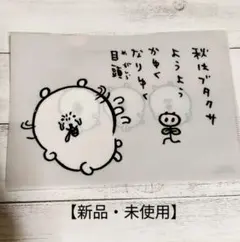 秋はブタクサ
ようよう
かゆく
なりゆく
目頭
めがしら
【新品・未使用】